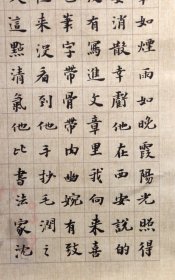 如煙雨如晚霞陽光照得
消散幸虧他在西安說的
沒有寫進文章里我向来喜
筆字帶骨帶肉幽婉有致
来沒看到他手抄毛潤之
這點清氣他比書法家沈